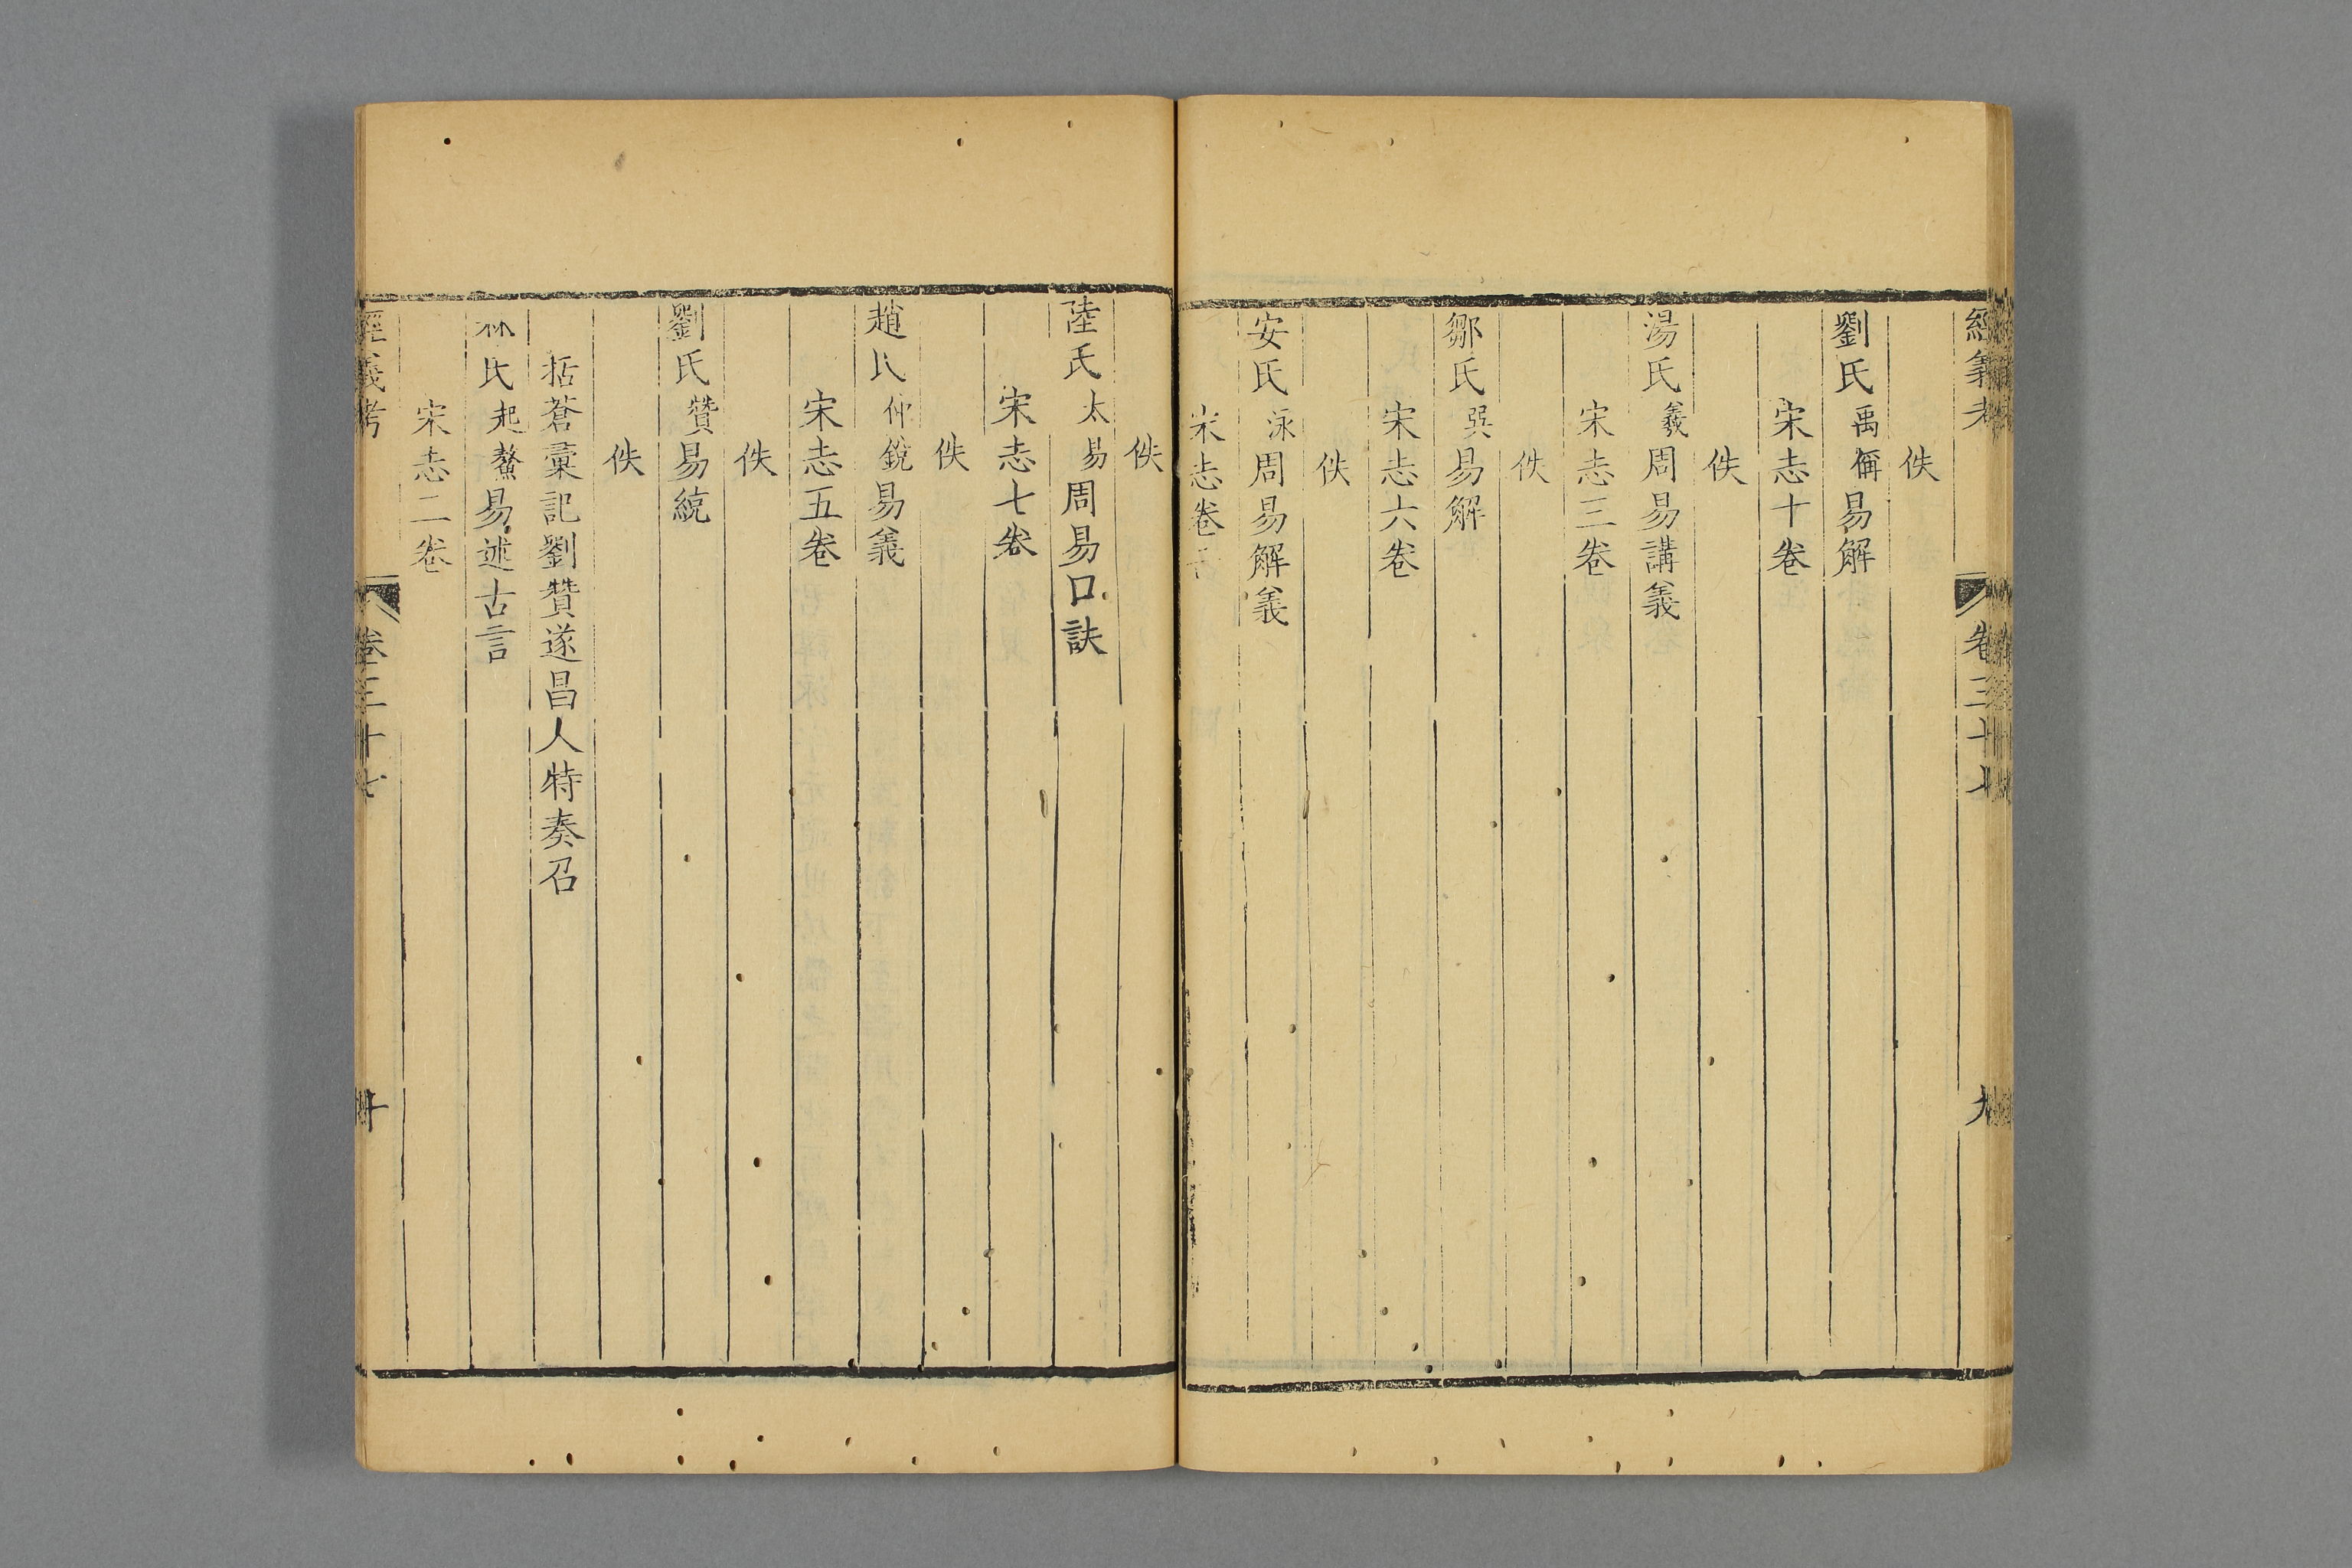 經義考 卷三十七 九
佚
劉氏禹偁易解
宋志十卷
佚
湯氏羲周易講義
宋志三卷
佚
鄒氏巽易解
宋志六卷
佚
安氏泳周易解義
宋志卷
佚
陸氏太易周易口訣
宋志七卷
佚
趙氏仲銳易義
宋志五卷
佚
劉氏贊易統
佚
括蒼彙記劉贊遂昌人特奏召
林氏起鰲易述古言
宋志二卷
經義考 卷三十七 十